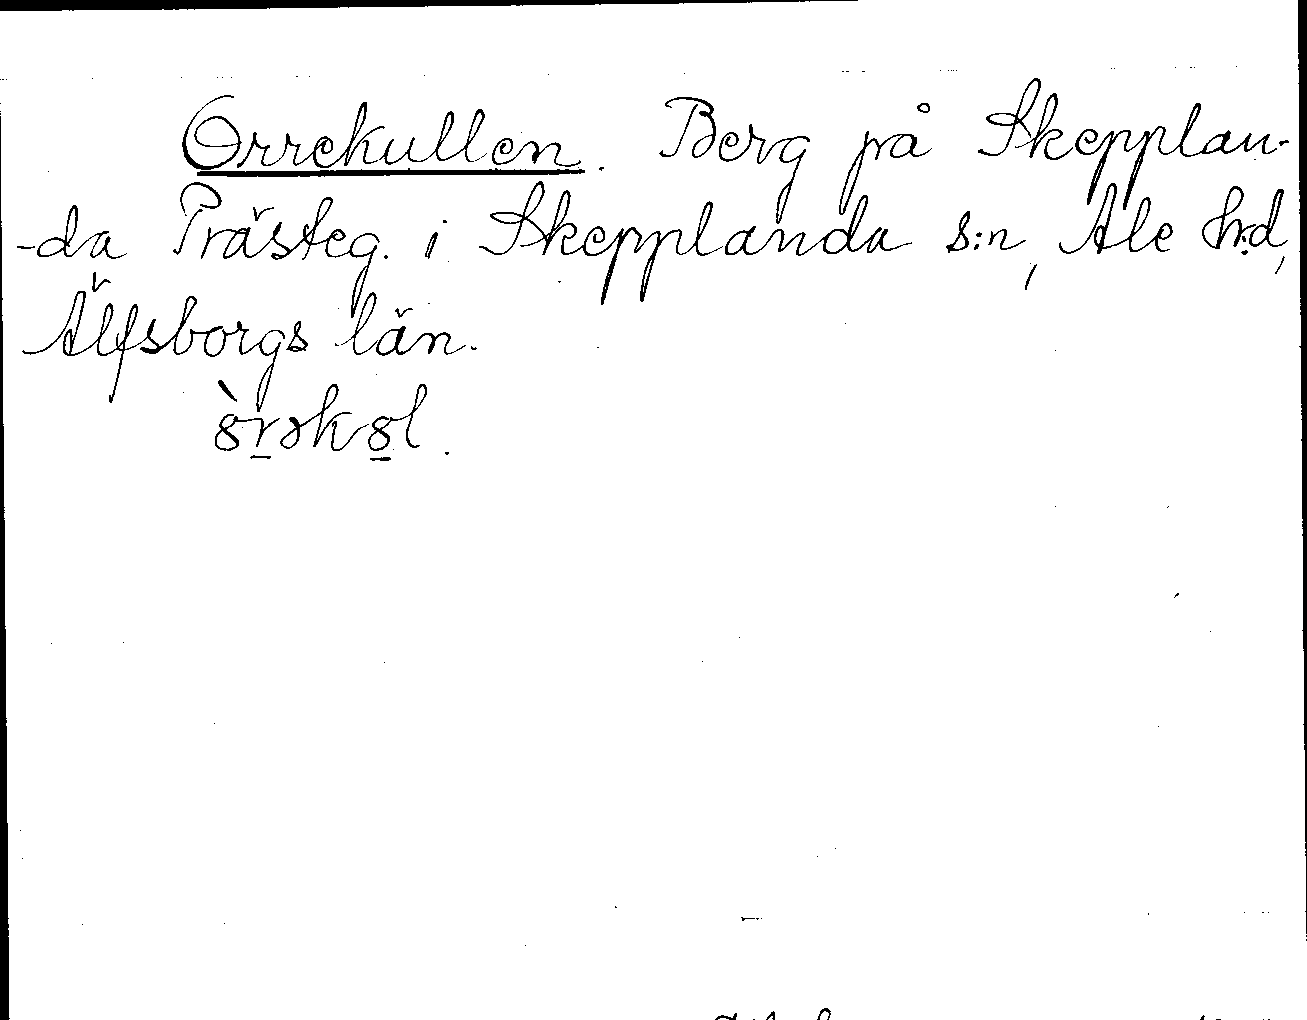 Orrekullen. Berg på Skepplan-
-da Prästeg. i Skepplanda s:n, Ale h:d,
Älfsborgs län.